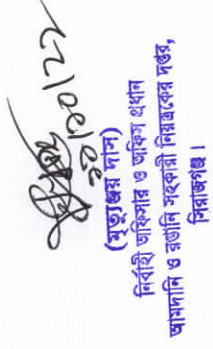 ১০/১০/২২
(মৃত্যুঞ্জয় দাস)
নির্বাহী অফিসার ও অফিস প্রধান
আমদানি ও রপ্তানি সহকারী নিয়ন্ত্রকের দপ্তর,
সিরাজগঞ্জ।